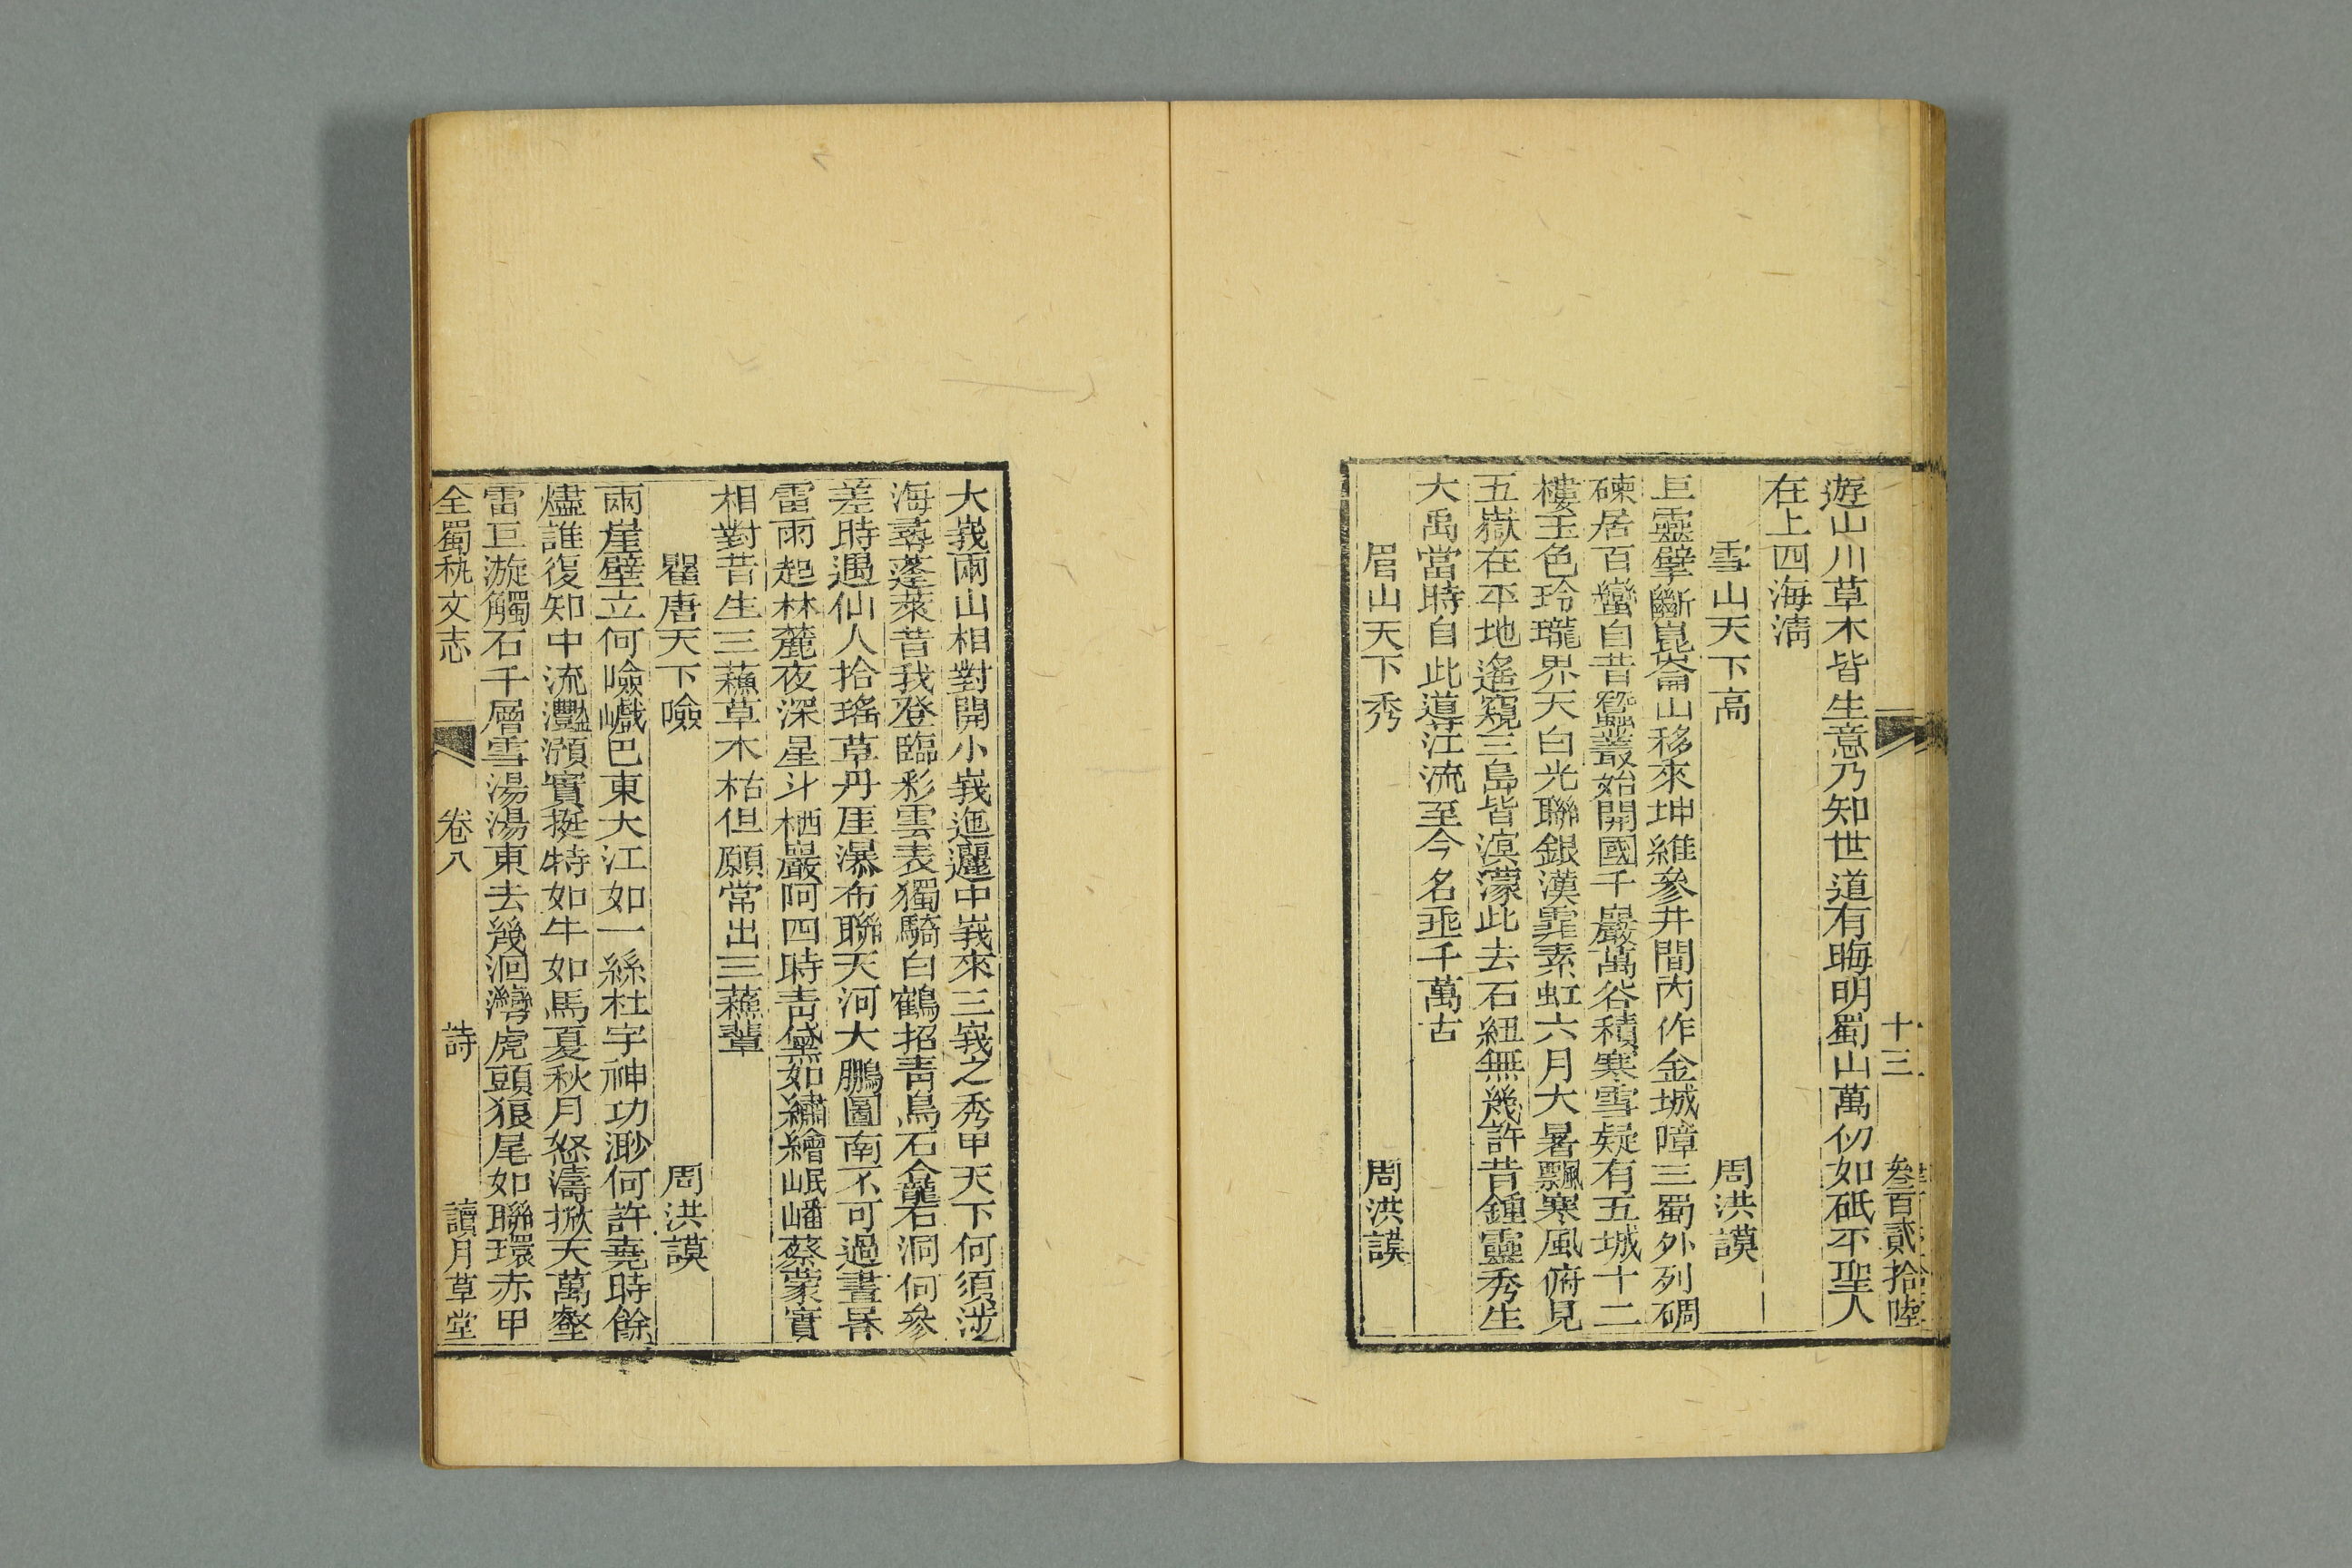 十三 叁百貳拾陸
遊山川草木皆生意乃知世道有晦明蜀山萬仞如砥平聖人
在上四海清
雪山天下高 周洪謨
巨靈擘斷崑崙山移來坤維參井間內作金城障三蜀外列碉
碉居百蠻自昔蠶叢始開國千巖萬谷積寒雪疑有五城十二
樓玉色玲瓏界天白光聯銀漢霏素虹六月大暑飄寒風俯見
五嶽在平地遙窺三島皆溟濛此去石紐無幾許昔鍾靈秀生
大禹當時自此導江流至今名垂千萬古
眉山天下秀 周洪謨
大峩兩山相對開小峩迤邐中峩來三峩之秀甲天下何須涉
海尋蓬萊昔我登臨彩雲表獨騎白鶴招青鳥石龕石洞何參
差時遇仙人拾瑤草丹厓瀑布聯天河大鵬圖南不可過晝昏
雷雨起林麓夜深星斗栖巖阿四時青黛如繡繪岷嶓蔡蒙實
相對昔生三蘇草木枯但願常出三蘇輩
瞿唐天下嶮 周洪謨
兩崖壁立何嶮巇巴東大江如一絲杜宇神功渺何許堯時餘
燼誰復知中流灩澦實挺特如牛如馬夏秋月怒濤掀天萬壑
雷巨漩觸石千層雪湯湯東去幾洄灣虎頭狼尾如聯環赤甲
全蜀秇文志 卷八 詩 讀月草堂